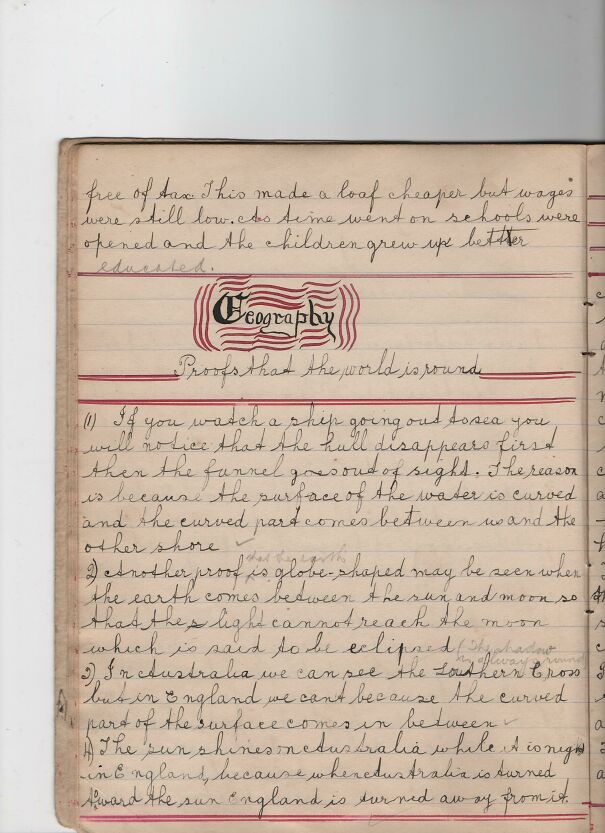 free of tax This made a loaf cheaper but wages
were still low. As time went on schools were
opened and the children grew up bettter
educated.
Geography
Proofs that the world is round
(1) If you watch a ship going out to sea you
will notice that the hull disappears first
then the funnel goes out of sight. The reason
is because the surface of the water is curved
and the curved part comes between us and the
other shore
that the earth
2) Another proof is globe-shaped may be seen when
the earth comes between the sun and moon so
that the light cannot reach the moon
which is said to be eclipsed (The shadow
is always round
3) In Australia we can see the Southern Cross
but in England we cant because the curved
part of the surface comes in between
4) The sun shines on Australia while it is night
in England, because when Australia is turned
toward the sun England is turned away from it.